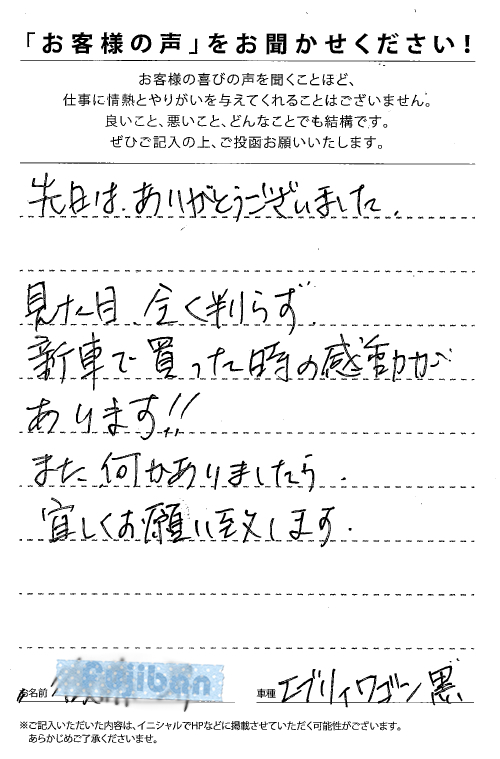 「お客様の声」をお聞かせください！
お客様の喜びの声を聞くことほど、
仕事に情熱とやりがいを与えてくれることはございません。
良いこと、悪いこと、どんなことでも結構です。
ぜひご記入の上、ご投函お願いいたします。
先日は、ありがとうございました。
見た目、全く判らず、
新車で買った時の感動が
あります!!
また何かありましたら、
宜しくお願い致します。
お名前
fujiban
車種 エブリィワゴン黒
※ご記入いただいた内容は、イニシャルでHPなどに掲載させていただく可能性がございます。
あらかじめご了承くださいませ。